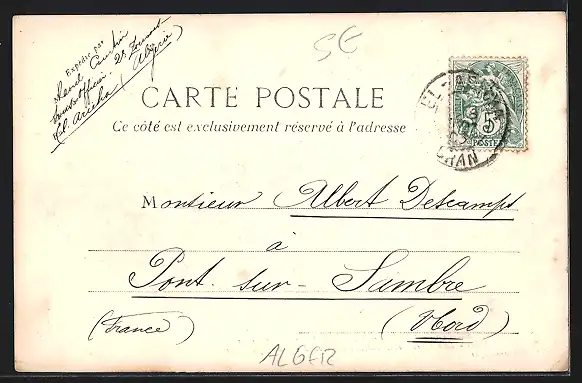 Expédié par
sous officier 2e Zouaves
El Aricha (Algérie)
5E
CARTE POSTALE
Ce côté est exclusivement réservé à l'adresse
EL-ARICHA
ORAN
5
POSTES
Monsieur Albert Descamps
à
Pont-sur-Sambre
(France) (Nord)
ALGER